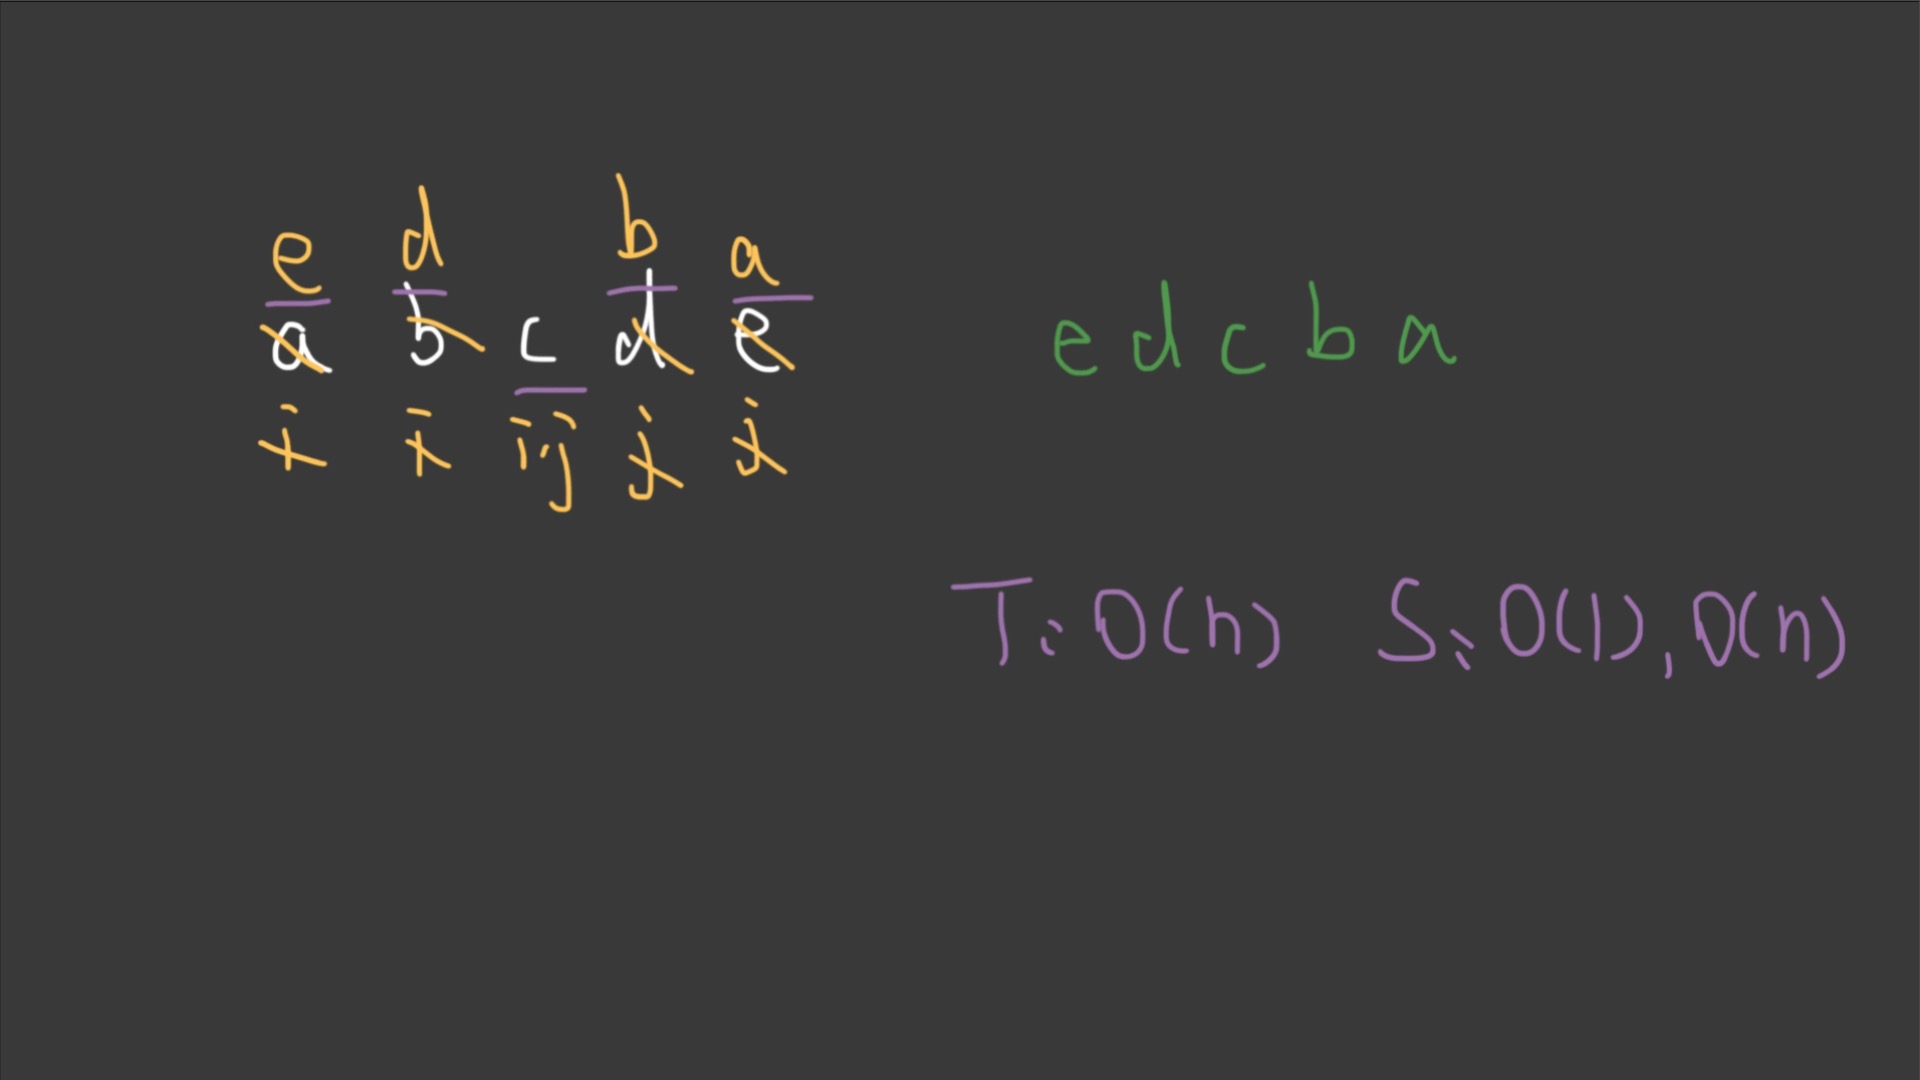 e d b a
a b c d e
i i i j j j
e d c b a
T: O(n) S: O(1), O(n)